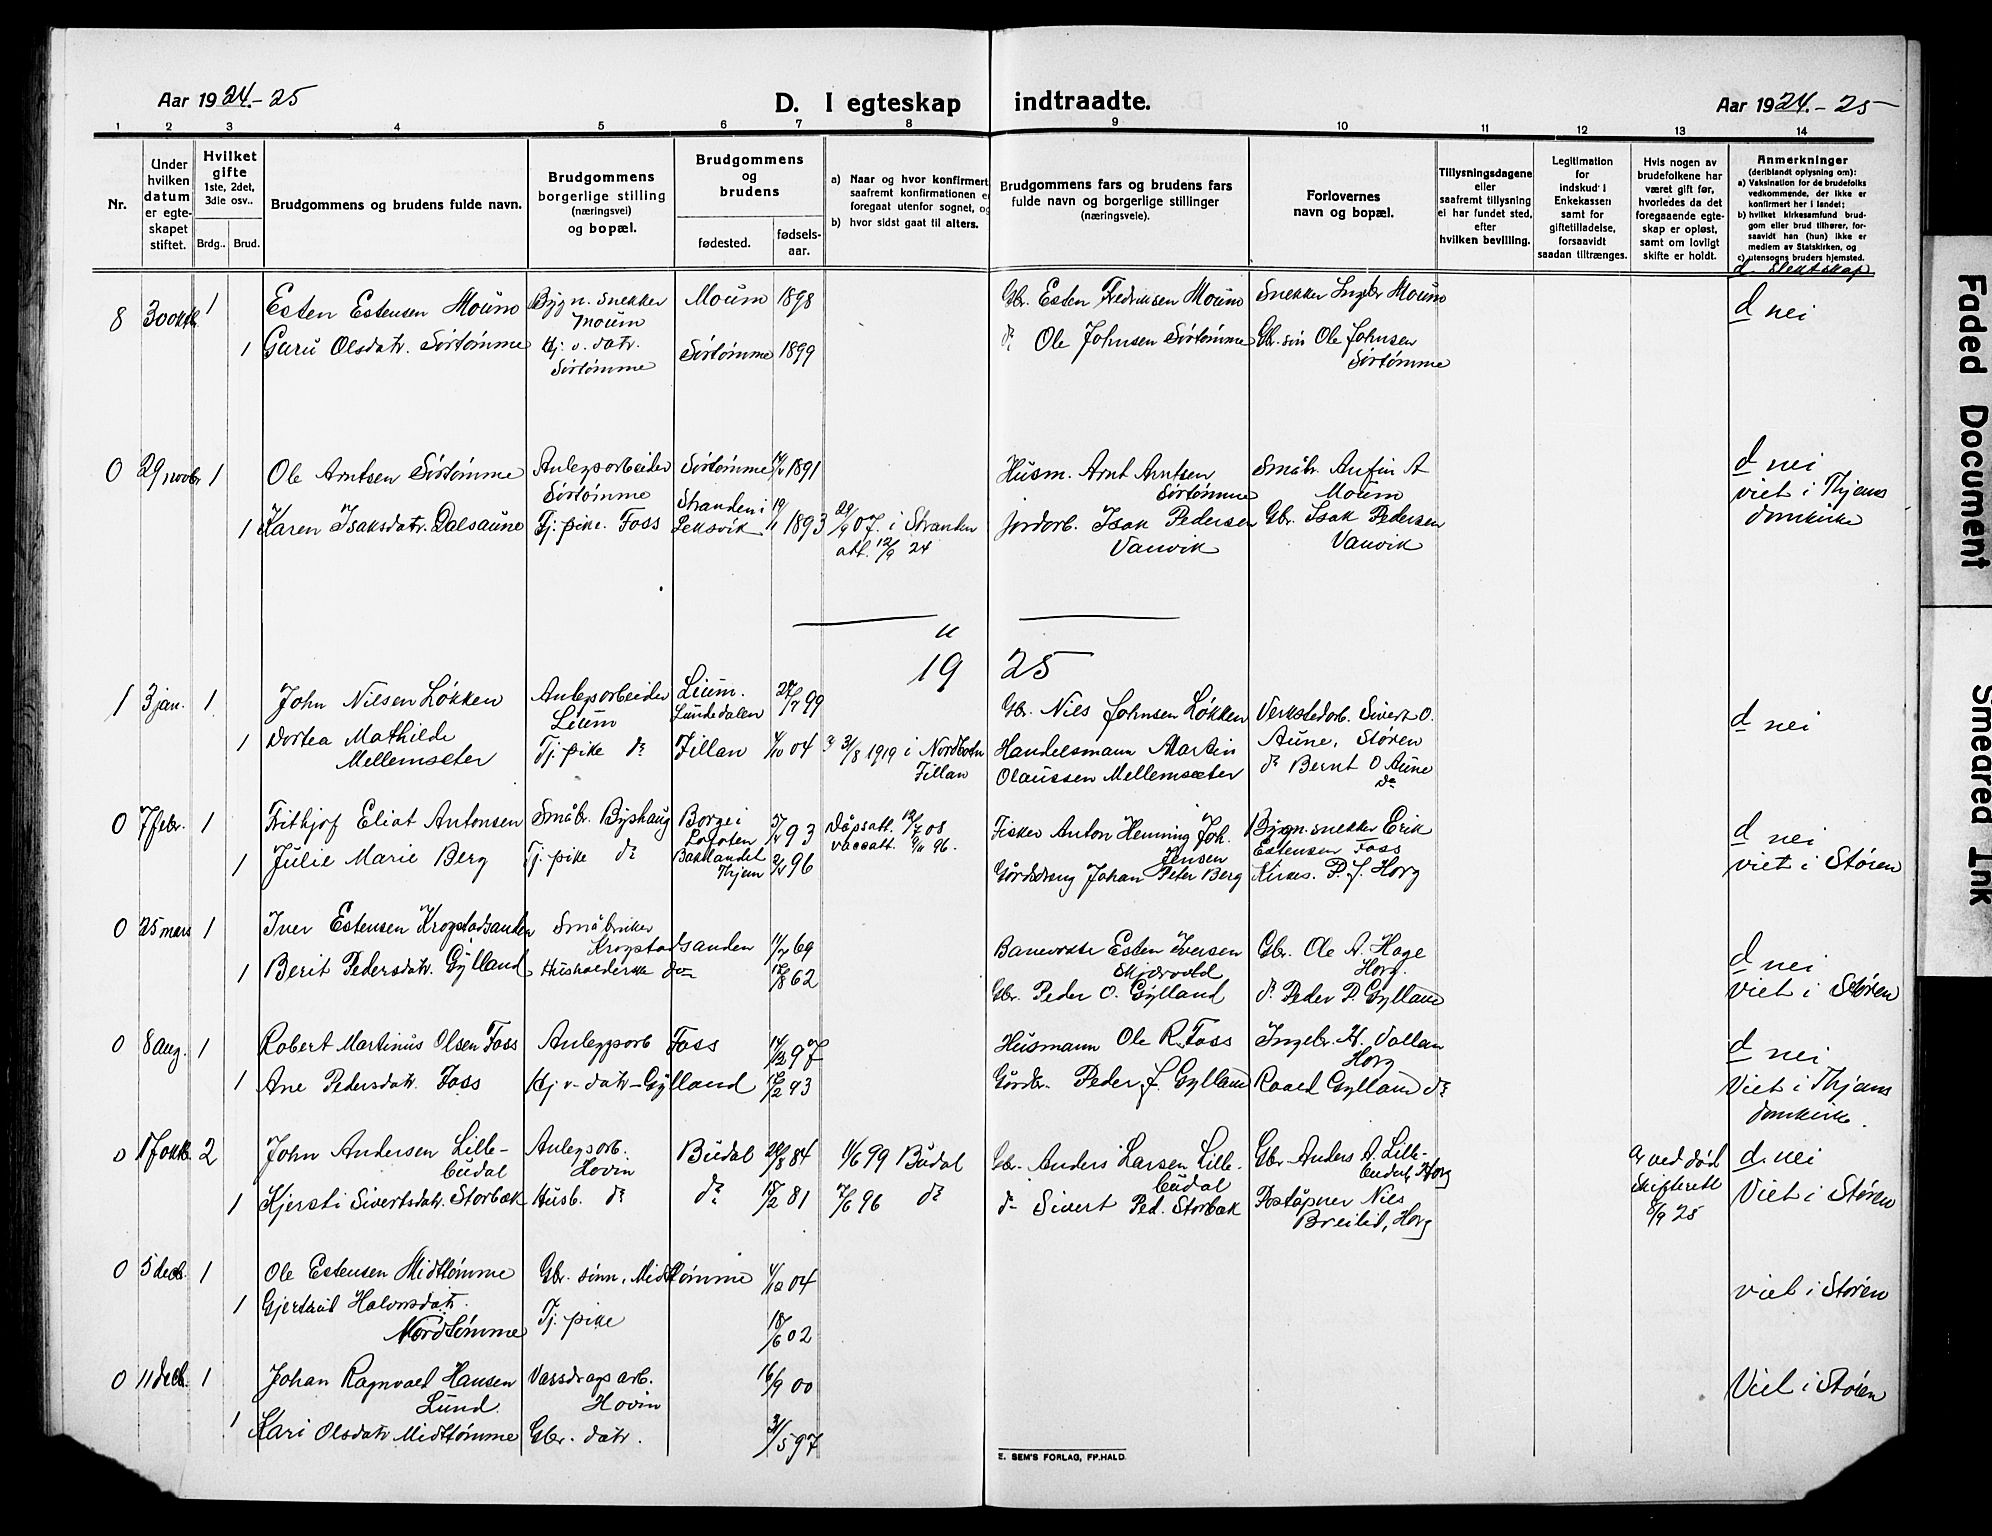 Aar 1924.-25
D. I egteskap indtraadte.
Aar 1924.-25
1 2 3 4 5 6 7 8 9 10 11 12 13 14
Nr.
Under hvilken datum er egteskapet stiftet.
Hvilket gifte 1ste, 2det, 3die osv..
Brdg.. Brud.
Brudgommens og brudens fulde navn.
Brudgommens borgerlige stilling (næringsvei) og bopæl.
Brudgommens og brudens
fødested.
fødselsaar.
a) Naar og hvor konfirmert, saafremt konfirmationen er foregaat utenfor sognet, og
b) hvor sidst gaat til alters.
Brudgommens fars og brudens fars fulde navn og borgerlige stillinger (næringsveie).
Forlovernes navn og bopæl.
Tillysningsdagene eller saafremt tillysning ei har fundet sted, efter hvilken bevilling.
Legitimation for indskud i Enkekassen samt for giftetilladelse, forsaavidt saadan tiltrænges.
Hvis nogen av brudefolkene har været gift før, hvorledes da det foregaaende egteskap er opløst, samt om lovlig skifte er holdt.
Anmerkninger (deriblandt oplysning om):
a) Vaksination for de brudefolks vedkommende, der ikke er konfirmert her i landet;
b) hvilket kirkesamfund brudgom eller brud tilhører, forsaavidt han (hun) ikke er medlem av Statskirken, og
c) utensogns bruders hjemsted.
d. Slektskap
8 30 oktb. 1 Esten Estensen Moum Bygn. snekker Moum 1898 Gbr. Esten Fredriksen Moum Snekker Ingebr Moum d nei
Moum
1 Guru Olsdatr. Sørtømme Kj. v. datr. Sørtømme 1899 Ole Johnsen Sørtømme Gbr. søn Ole Johnsen
Sørtømme Sørtømme
0 29 novbr 1 Ole Arntsen Sørtømme Anlegsarbeider Sørtømme 1891 Husm. Arnt Arntsen Småbr. Anfin A d nei
Sørtømme Sørtømme Moum viet i Thjems
1 Karen Isaksdatr. Dalsaune Tj. pike. Foss Stranden i Leksvik 19/11 1893 29/9 07. i Stranden Jordarb. Isak Pedersen Gbr. Isak Pedersen domkirke
att. 12/9 24 Vanvik Vanvik
1925
1 3 jan. 1 John Nilsen Løkken Anlegsarbeider Lium. 99 Gbr. Nils Johnsen Løkken Verkstedarb. Sivert O. d nei
Lium Lundedalen Aune, Støren
1 Dortea Mathilde Tj. pike do Fillan 04 31/8 1919 i Nordbotn Handelsmann Martin do Bernt O Aune
Mellemsæter Fillan Olaussen Mellemsæter do
0 7 febr. 1 Frithjof Eliat Antonsen Småbr. Byshaug Borge i 93 Dåpsatt. 08 Fisker Anton Henning Joh. Bygn. snekker Erik d nei
Lofoten vaccatt. 96. Jensen Estensen Foss
1 Julie Marie Berg Tj. pike do Baklandet 96 Gårdsdreng Johan Peter Berg P. J. Horg viet i Støren
Thjem
0 25 mars 1 Iver Estensen Krogstadsanden Småbruker 69 Banevokter Esten Iversen Gbr. Ole A. Hage d nei
Krogstadsanden Skjærvold Horg.
1 Berit Pedersdatr. Gylland Husholderske do 62 Gbr. Peder O. Gylland do Peder P. Gylland viet i Støren
0 8 aug. 1 Robert Martinus Olsen Foss Anleggsarb Foss 97 Husmann Ole R. Foss Ingebr. H. Vollan d nei
Horg
1 Ane Pedersdatr. Foss Kj v. datr - Gylland 12/2 93 Gårdbr. Peder J. Gylland Roald Gylland do Viet i Thjems
domkirke.
0 17 oktb. 2 John Andersen Lille- Anlegsarb. Budal 29/8 84 1/6 99 Budal Gbr. Anders Larsen Lille- Gbr Anders A. Lille- Ar ved død d. nei
budal Hovin budal budal, Horg skifterett 8/9 25
1 Kjersti Sivertsdatr. Storbæk Husb. do do 18/2 81 7/6 96 do do Sivert Ped. Storbæk Poståpner Nils Viet i Støren
Breilid, Horg
0 5 decb. 1 Ole Estensen Midttømme Gbr. sønn, Midttømme 04 viet i Støren
1 Gjertrud Halvorsdatr. Tj. pike 18/6 02
Nordtømme
0 11 decb. 1 Johan Ragnvald Hansen Vassdragsarb. 16/9 00 Viet i Støren
Lund. Hovin
1 Kari Olsdatr Midttømme Gbr. datr. 31/5 97
E. SEM'S FORLAG, FR.HALD.
Faded Document
Smeared Ink